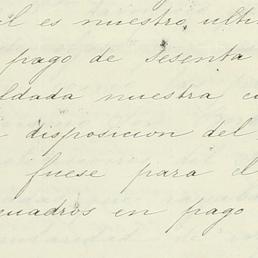 es nuestro ulti
pago de Sesenta
ldada nuestra cu
disposicion del
fuese para el
cuadros en pago